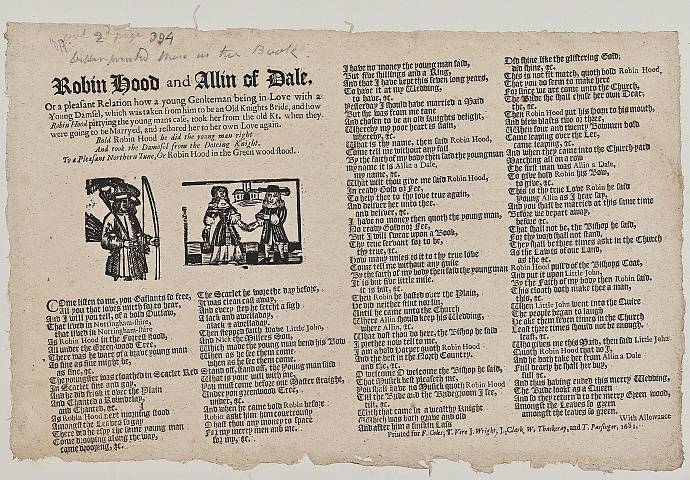 2d page 394
better printed than in the Book
Robin Hood and Allin of Dale.
Or a pleasant Relation how a young Gentleman being in Love with a
Young Damsel, which was taken from him to be an Old Knights Bride, and how
Robin Hood pittying the young mans case, took her from the old Kt. when they
were going to be Marryed, and restored her to her own Love again.
Bold Robin Hood he did the young man right
And took the Damosel from the Doteing Knight.
To a Pleasant Northern Tune, Or Robin Hood in the Green wood stood.
COme listen to me, you Gallants so free,
All you that loves mirth for to hear,
And I will you tell, of a bold Outlaw,
That lived in Nottingham-shire,
that lived in Nottingham-shire
As Robin Hood in the Forest stood,
All under the Green wood Tree,
There was he ware of a brave young man
As fine as fine might be,
as fine, &c.
The youngster was cloathed in Scarlet Red
In Scarlet fine and gay,
And he did frisk it over the Plain
And Chanted a Roundelay,
and Chanted, &c.
As Robin Hood next morning stood
Amongst the Leaves so gay
There did he espy the same young man
Come drooping along the way,
come drooping, &c.
The Scarlet he wore the day before,
It was clean cast away,
And every step he fetcht a sigh
Alack and a well aday,
alack a welladay.
Then stepped forth brave Little John,
And Nick the Millers Son,
Which made the young man bend his Bow
When as he see them come.
when as he see them come.
Stand off, stand off, the Young man said
What is your will with me,
You must come before our Master straight,
Under yon greenwood Tree,
under, &c.
And when he came bold Robin before
Robin askt him hourteously
O hast thou any money to spare
For my merry men and me.
for my, &c.
I have no money the young man said,
But five shillings and a Ring,
And that I have kept this seven long years,
To have it at my Wedding,
to have, &c.
yesterday I should have married a Maid
But she was from me tane
And chosen to be an old Knights delight,
Whereby my poor heart is slain,
whereby, &c.
What is thy name, then said Robin Hood,
Come tell me without any fail
By the faith of my body then said the youngman
my name it is Allin a Dale,
my name, &c.
What wilt thou give me said Robin Hood,
In ready Gold or Fee,
To help thee to thy love true again,
And deliver her unto thee.
and deliver, &c.
I have no money then quoth the young man,
No ready Gold nor Fee,
But I will swear upon a Book,
Thy true servant for to be,
thy true, &c.
How many miles is it to thy true love
Come tell me without any guile
By the faith of my body then said the youngman
It is but five little mile.
it is but, &c.
Then Robin he hasted over the Plain,
He did neither stint nor lin,
Until he came unto the Church
Where Allin should keep his Wedding,
where Allin, &c.
What dost thou do here, the Bishop he said
I prethee now tell to me,
I am a bold Harper quoth Robin Hood
And the best in the North Country,
and the, &c.
O welcome O welcome the Bishop he said,
That Musick best pleaseth me,
You shall have no Musick quoth Robin Hood
Till the Bride and the Bridegroom I see,
till, &c.
With that came in a wealthy Knight
Which was both grave and old
And after him a finikin Lass
Did shine like the glistering Gold;
did shine, &c.
This is not fit match, quoth bold Robin Hood,
That you do seem to make here
For since we are come unto the Church,
The Bride she shall chuse her own Dear;
the, &c.
Then Robin Hood put his horn to his mouth,
And blew blasts two or three,
When four and twenty Bowmen bold
Came leaping over the Lee,
came leaping, &c.
And when they came into the Church-yard
Marching all on a row
The first man was Allin a Dale,
To give bold Robin his Bow,
to give, &c.
This is thy true Love Robin he said
Young Allin as I hear say,
And you shall be married at this same time
Before we depart away,
before &c.
That shall not be, the Bishop he said,
For thy word shall not stand,
They shall be three times askt in the Church
As the Law is of our Land,
as the &c.
Robin Hood pull'd of the Bishops Coat,
And put it upon Little John,
By the Faith of my body then Robin said,
This cloath doth make thee a man,
this, &c.
When Little John went into the Quire
The people began to laugh
He askt them seven times in the Church
Least three times should not be enough.
least, &c.
Who gives me this Maid, then said Little John
Quoth Robin Hood that do I,
And he doth take her from Allin a Dale
Full dearly he shall her buy,
full &c.
And thus having ended this merry Wedding,
The Bride lookt as a Queen
And so they return'd to the merry Green wood,
Amongst the Leaves so green
amongst the leaves so green.
With Allowance
Printed for F. Coles, T. Vere J. Wright, J. Clark, W. Thackeray, and T. Passinger, 1681.